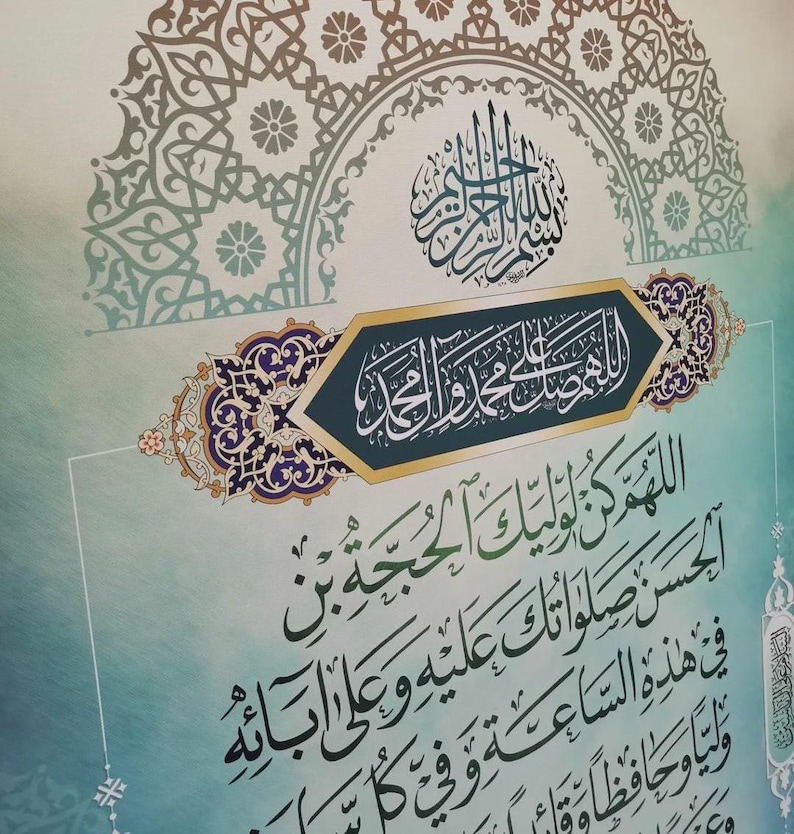 بسم الله الرحمن الرحيم
اللهم صل على محمد وآل محمد
اللَّهُمَّ كُنْ لِوَلِيِّكَ الْحُجَّةِ بْنِ
الْحَسَنِ صَلَوَاتُكَ عَلَيْهِ وَعَلَى آبَائِهِ
فِي هٰذِهِ السَّاعَةِ وَفِي كُلِّ
وَلِيًّا وَحَافِظًا وَقَائِدًا